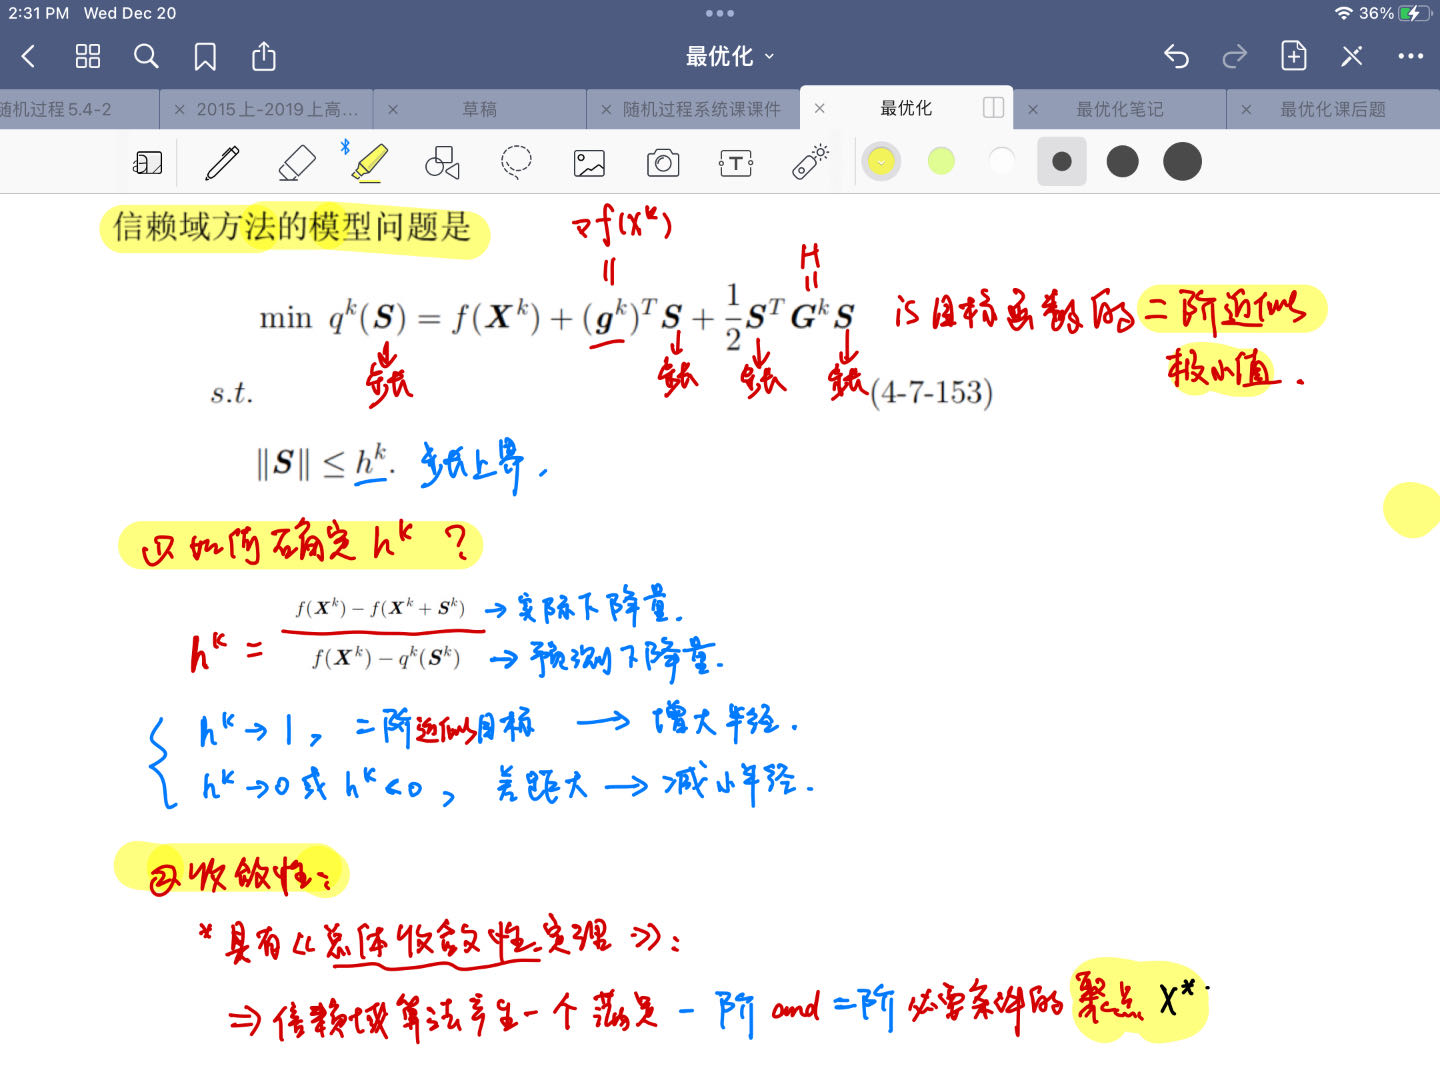 2:31 PM Wed Dec 20 36%
最优化
随机过程5.4-2 × 2015上-2019上高... × 草稿 × 随机过程系统课课件 × 最优化 × 最优化笔记 × 最优化课后题
信赖域方法的模型问题是
∇f(X^k)
=
H
=
min q^k(S) = f(X^k) + (g^k)^T S + 1/2 S^T G^k S is 目标函数的二阶近似
↓步长 ↓步长 ↓步长 ↓步长 极小值.
s.t. (4-7-153)
‖S‖ ≤ h^k. 步长上界.
① 如何确定 h^k ?
h^k =
f(X^k) − f(X^k + S^k) → 实际下降量.
f(X^k) − q^k(S^k) → 预测下降量.
{ h^k → 1, 二阶近似目标 → 增大半径.
h^k → 0 或 h^k < 0, 差距大 → 减小半径.
② 收敛性:
* 具有《总体收敛性定理》:
⇒ 信赖域算法产生一个满足一阶 and 二阶必要条件的聚点 X*.